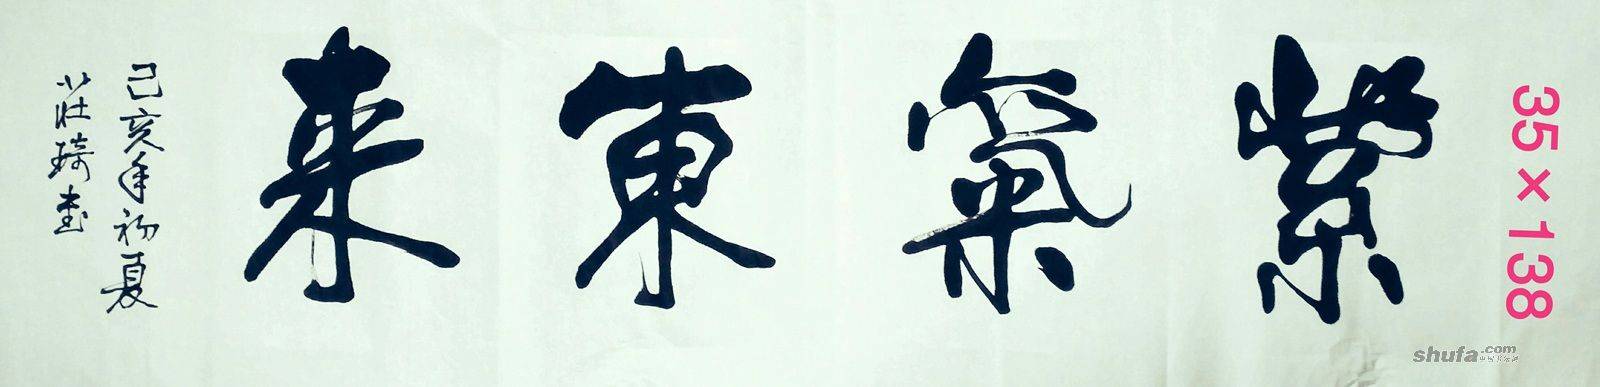 紫氣東来
己亥年初夏
莊琦书
35×138
shufa.com